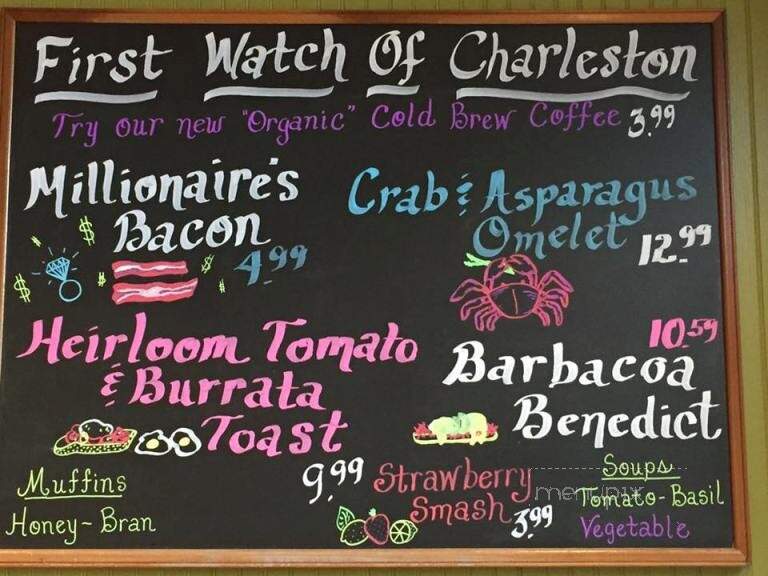 First Watch Of Charleston
Try our new "Organic" Cold Brew Coffee 3.99
Millionaire's
Bacon
4.99
Crab & Asparagus
Omelet
12.99
Heirloom Tomato
& Burrata
Toast
9.99
10.59
Barbacoa
Benedict
Muffins
Honey-Bran
Strawberry
Smash
3.99
Soups
Tomato-Basil
Vegetable
menupix